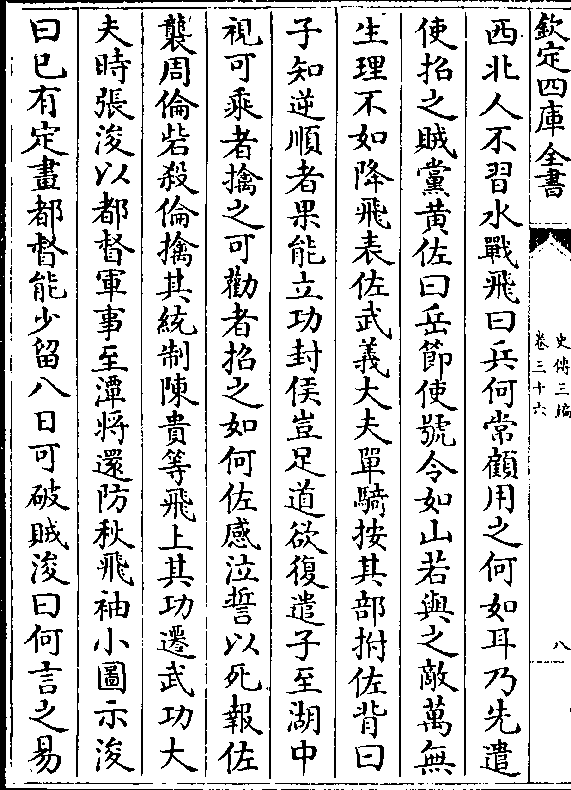 欽定四庫全書
史傳三編
卷三十六
八
西北人不習水戰飛曰兵何常顧用之何如耳乃先遣
使招之賊黨黃佐曰岳節使號令如山若與之敵萬無
生理不如降飛表佐武義大夫單騎按其部拊佐背曰
子知逆順者果能立功封侯豈足道欲復遣子至湖中
視可乘者擒之可勸者招之如何佐感泣誓以死報佐
襲周倫砦殺倫擒其統制陳貴等飛上其功遷武功大
夫時張浚以都督軍事至潭將還防秋飛袖小圖示浚
曰已有定畫都督能少留八日可破賊浚曰何言之易